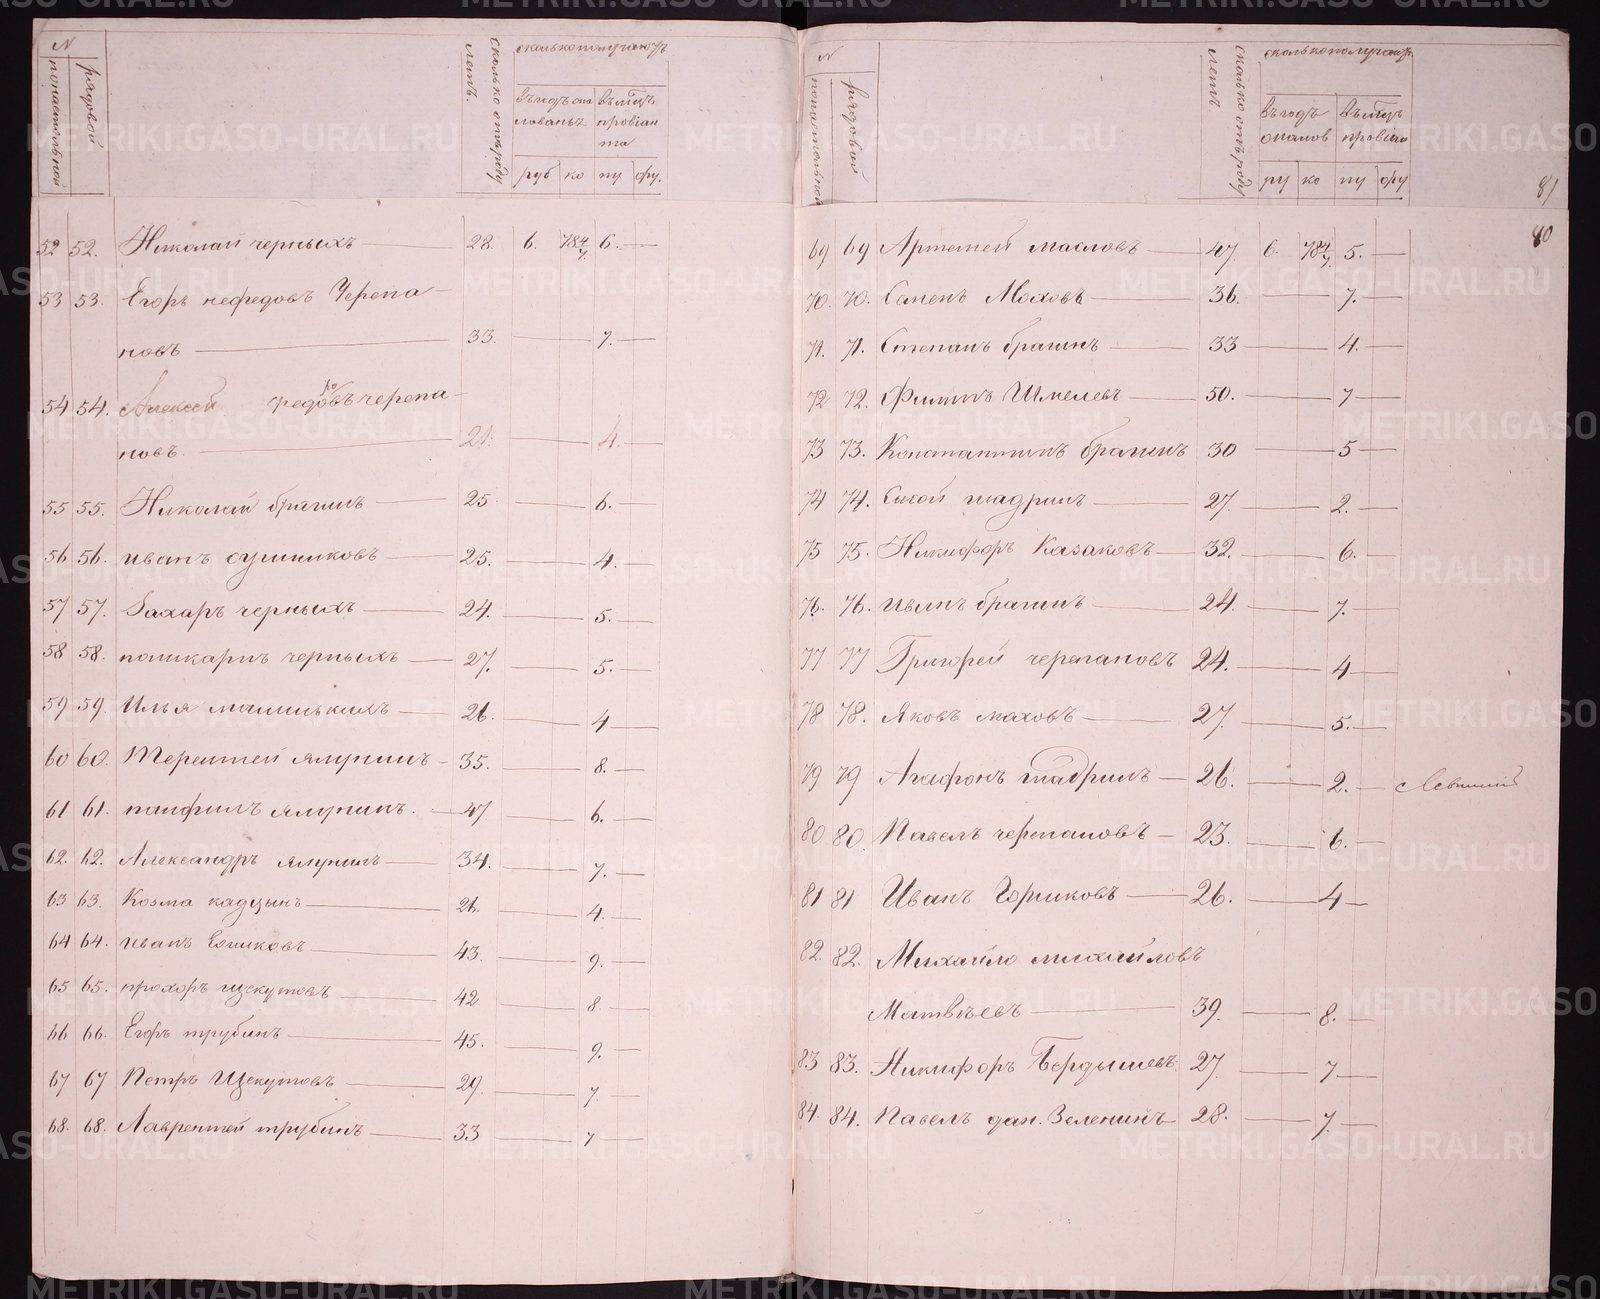 N
попостольной
рядовой
летъ.
сколько отъ роду
сколько получаютъ
въ годъ
провіан
та
руб ко пу фу.
52 52. Николай черныхъ 28. 6. 784/7 6.
53 53. Егоръ нефедовъ Черепа
новъ 33. 7.
54 54. Алексей федо́въ черепа
новъ. 21. 4.
55 55. Николай брагинъ 25 6.
56 56. иванъ сушниковъ 25. 4.
57 57. Захаръ черныхъ 24. 5.
58 58. поликарпъ черныхъ 27. 5.
59 59. Илья малинькихъ 26. 4
60 60. Терентей ялунинъ 35. 8.
61 61. панфилъ ялунинъ. 47 6.
62. 62. Александръ ялунинъ 34. 7.
63 63. Козма кадцынъ 26. 4.
64 64. иванъ 43. 9.
65 65. прохоръ щекутовъ 42 8
66 66. Егоръ трубинъ 45. 9.
67 67 Петръ Щекутовъ 29. 7.
68. 68. Лаврентей трубинъ 33 7
N
рядовой
летъ
сколько отъ роду
сколько получаютъ
въ годъ
ру ко пу фу
81
80
69 69 Артемей масловъ 47 6. 784/7. 5.
70. 70. Семенъ Моховъ 36. 7.
71. 71. Степанъ брагинъ 33 4.
72 72. Филипъ Шмелевъ 50. 7
73 73. Константинъ брагинъ 30 5
74 74. Сысой шадринъ 27. 2.
75 75. Никифоръ Казаковъ 32. 6.
76. 76. брагинъ 24. 7.
77 77 Григорей черепановъ 24. 4
78 78. Яковъ моховъ 27. 5.
79 79 Агафонъ шадринъ 26. 2.
80 80. Павелъ черепановъ 23. 6.
81 81 Иванъ Горшковъ 26. 4
82. 82. Михайло михайловъ
Матвѣевъ 39. 8.
83 83. Никифоръ Бердышевъ 27 7
84. 84. Павелъ дан. Зеленинъ 28. 7.
METRIKI.GASO-URAL.RU